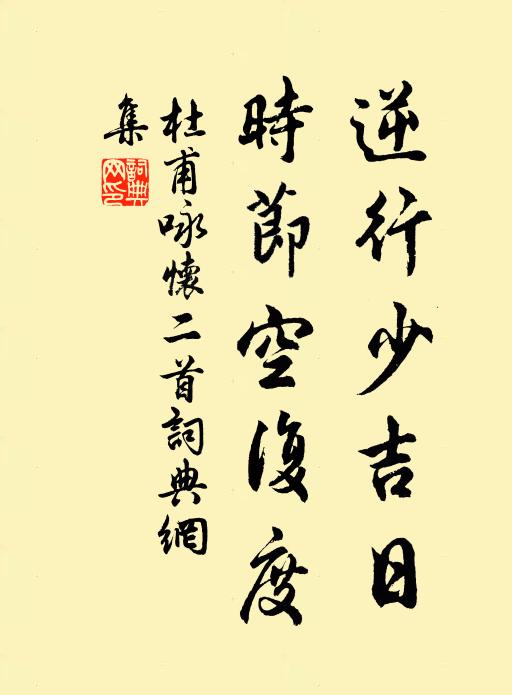 逆行少吉日
時節空復度
杜甫咏懷二首詞典網
集
詞典網印